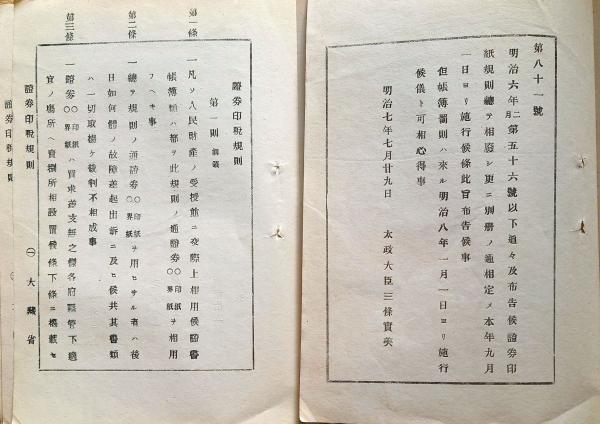 第八十一號
明治六年二月第五十六號以下追々及布告候證券印
紙規則總テ相廢シ更ニ別册ノ通相定メ本年九月
一日ヨリ施行候條此旨布告候事
但帳簿罰則ハ來ル明治八年一月一日ヨリ施行
候儀ト可相心得事
明治七年七月廿九日
太政大臣三條實美
證券印稅規則
第一則
第一條
一凡ソ人民財產ノ受授雇ニ交際上相用候證書
帳簿類ハ都テ此規則ノ通證券○印紙○界紙ヲ相用
フヘキ事
第二條
一總テ規則ノ通證券○印紙○界紙ヲ用ヒサル者ハ後
日如何體ノ故障差起出訴ニ及ヒ候共其書類
ハ一切取揚ケ裁判不相成事
第三條
一證券○印紙○界紙ハ買求差支無之樣各府縣管下適
宜ノ場所ヘ賣捌所相設置候條下條ニ揭載セ
證券印稅規則
㊀
大藏省
證券印稅規則